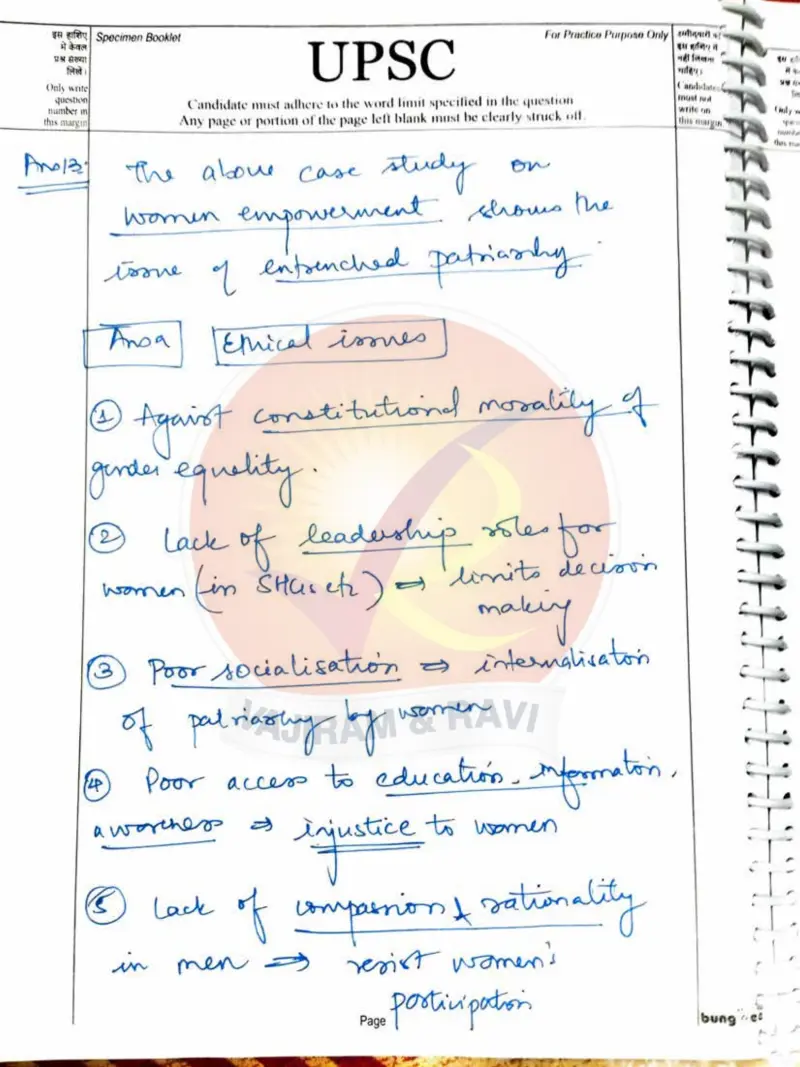 इस हाशिए
में केवल
प्रश्न संख्या
लिखें।
Only write
question
number in
this margin
Specimen Booklet
For Practice Purpose Only
UPSC
Candidate must adhere to the word limit specified in the question
Any page or portion of the page left blank must be clearly struck off.
इस हाशिए में
नहीं लिखना
चाहिए।
Candidates
must not
write on
this margin
Ans13:
The above case study on
women empowerment shows the
issue of entrenched patriarchy
Ans a
Ethical issues
① Against constitutional morality of
gender equality.
② Lack of leadership roles for
women (in SHGs etc) ⇒ limits decision
making
③ Poor socialisation ⇒ internalisation
of patriarchy by women
VAJIRAM & RAVI
④ Poor access to education, information,
awareness ⇒ injustice to women
⑤ Lack of compassion & rationality
in men ⇒ resist women's
participation
Page